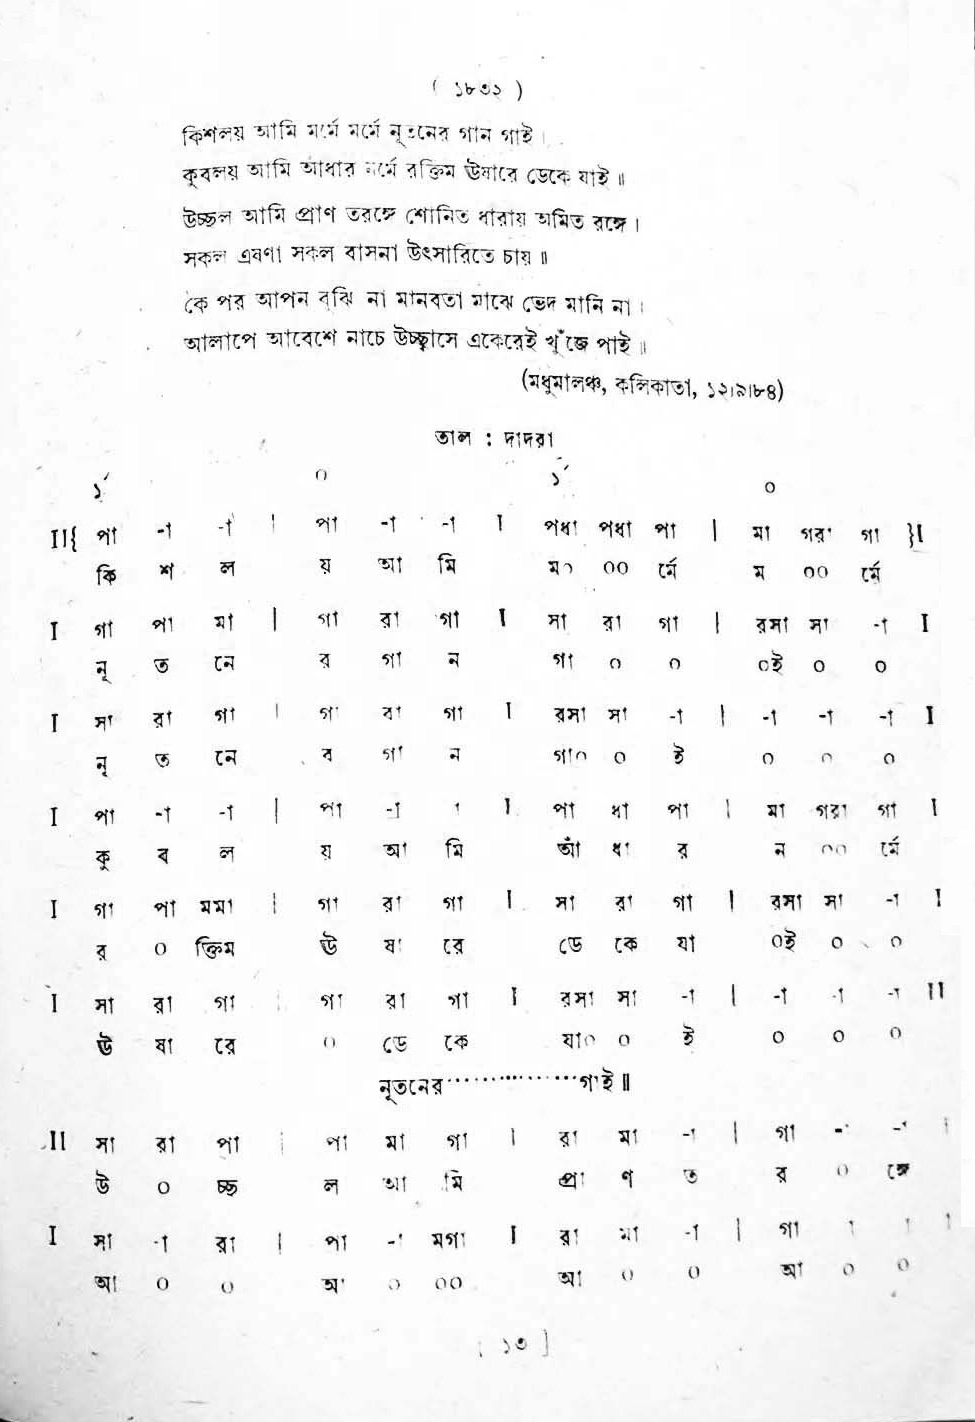 ( ১৮৩২ )
কিশলয় আমি মর্মে মর্মে নূতনের গান গাই।
কুবলয় আমি আঁধার নর্মে রক্তিম ঊষারে ডেকে যাই॥
উচ্ছল আমি প্রাণ তরঙ্গে শোনিত ধারায় অমিত রঙ্গে।
সকল এষণা সকল বাসনা উৎসারিতে চায়॥
কৈ পর আপন বুঝি না মানবতা মাঝে ভেদ মানি না।
আলাপে আবেশে নাচে উচ্ছ্বাসে একেরেই খুঁজে পাই॥
(মধুমালঞ্চ, কলিকাতা, ১২।৯।৮৪)
তাল : দাদরা
১́ ০ ১́ ০
II{ পা -া -া | পা -া -া I পধা পধা পা | মা গরা গা }I
কি শ ল য় আ মি ম০ ০০ র্মে ম ০০ র্মে
I গা পা মা | গা রা গা I সা রা গা | রসা সা -া I
নূ ত নে র গা ন গা ০ ০ ০ই ০ ০
I সা রা গা | গা রা গা I রসা সা -া | -া -া -া I
নূ ত নে র গা ন গা০ ০ ই ০ ০ ০
I পা -া -া | পা -া -া I পা ধা পা | মা গরা গা I
কু ব ল য় আ মি আঁ ধা র ন ০০ র্মে
I গা পা মমা | গা রা গা I সা রা গা | রসা সা -া I
র ০ ক্তিম ঊ ষা রে ডে কে যা ০ই ০ ০
I সা রা গা | গা রা গা I রসা সা -া | -া -া -া II
ঊ ষা রে ০ ডে কে যা০ ০ ই ০ ০ ০
নূতনের..................গাই॥
II সা রা পা | পা মা গা | রা মা -া | গা -া -া |
উ ০ চ্ছ ল আ মি প্রা ণ ত র ০ ঙ্গে
I সা -া রা | পা -া মগা I রা মা -া | গা া া |
আ ০ ০ আ ০ ০০ আ ০ ০ আ ০ ০
[ ১৩ ]